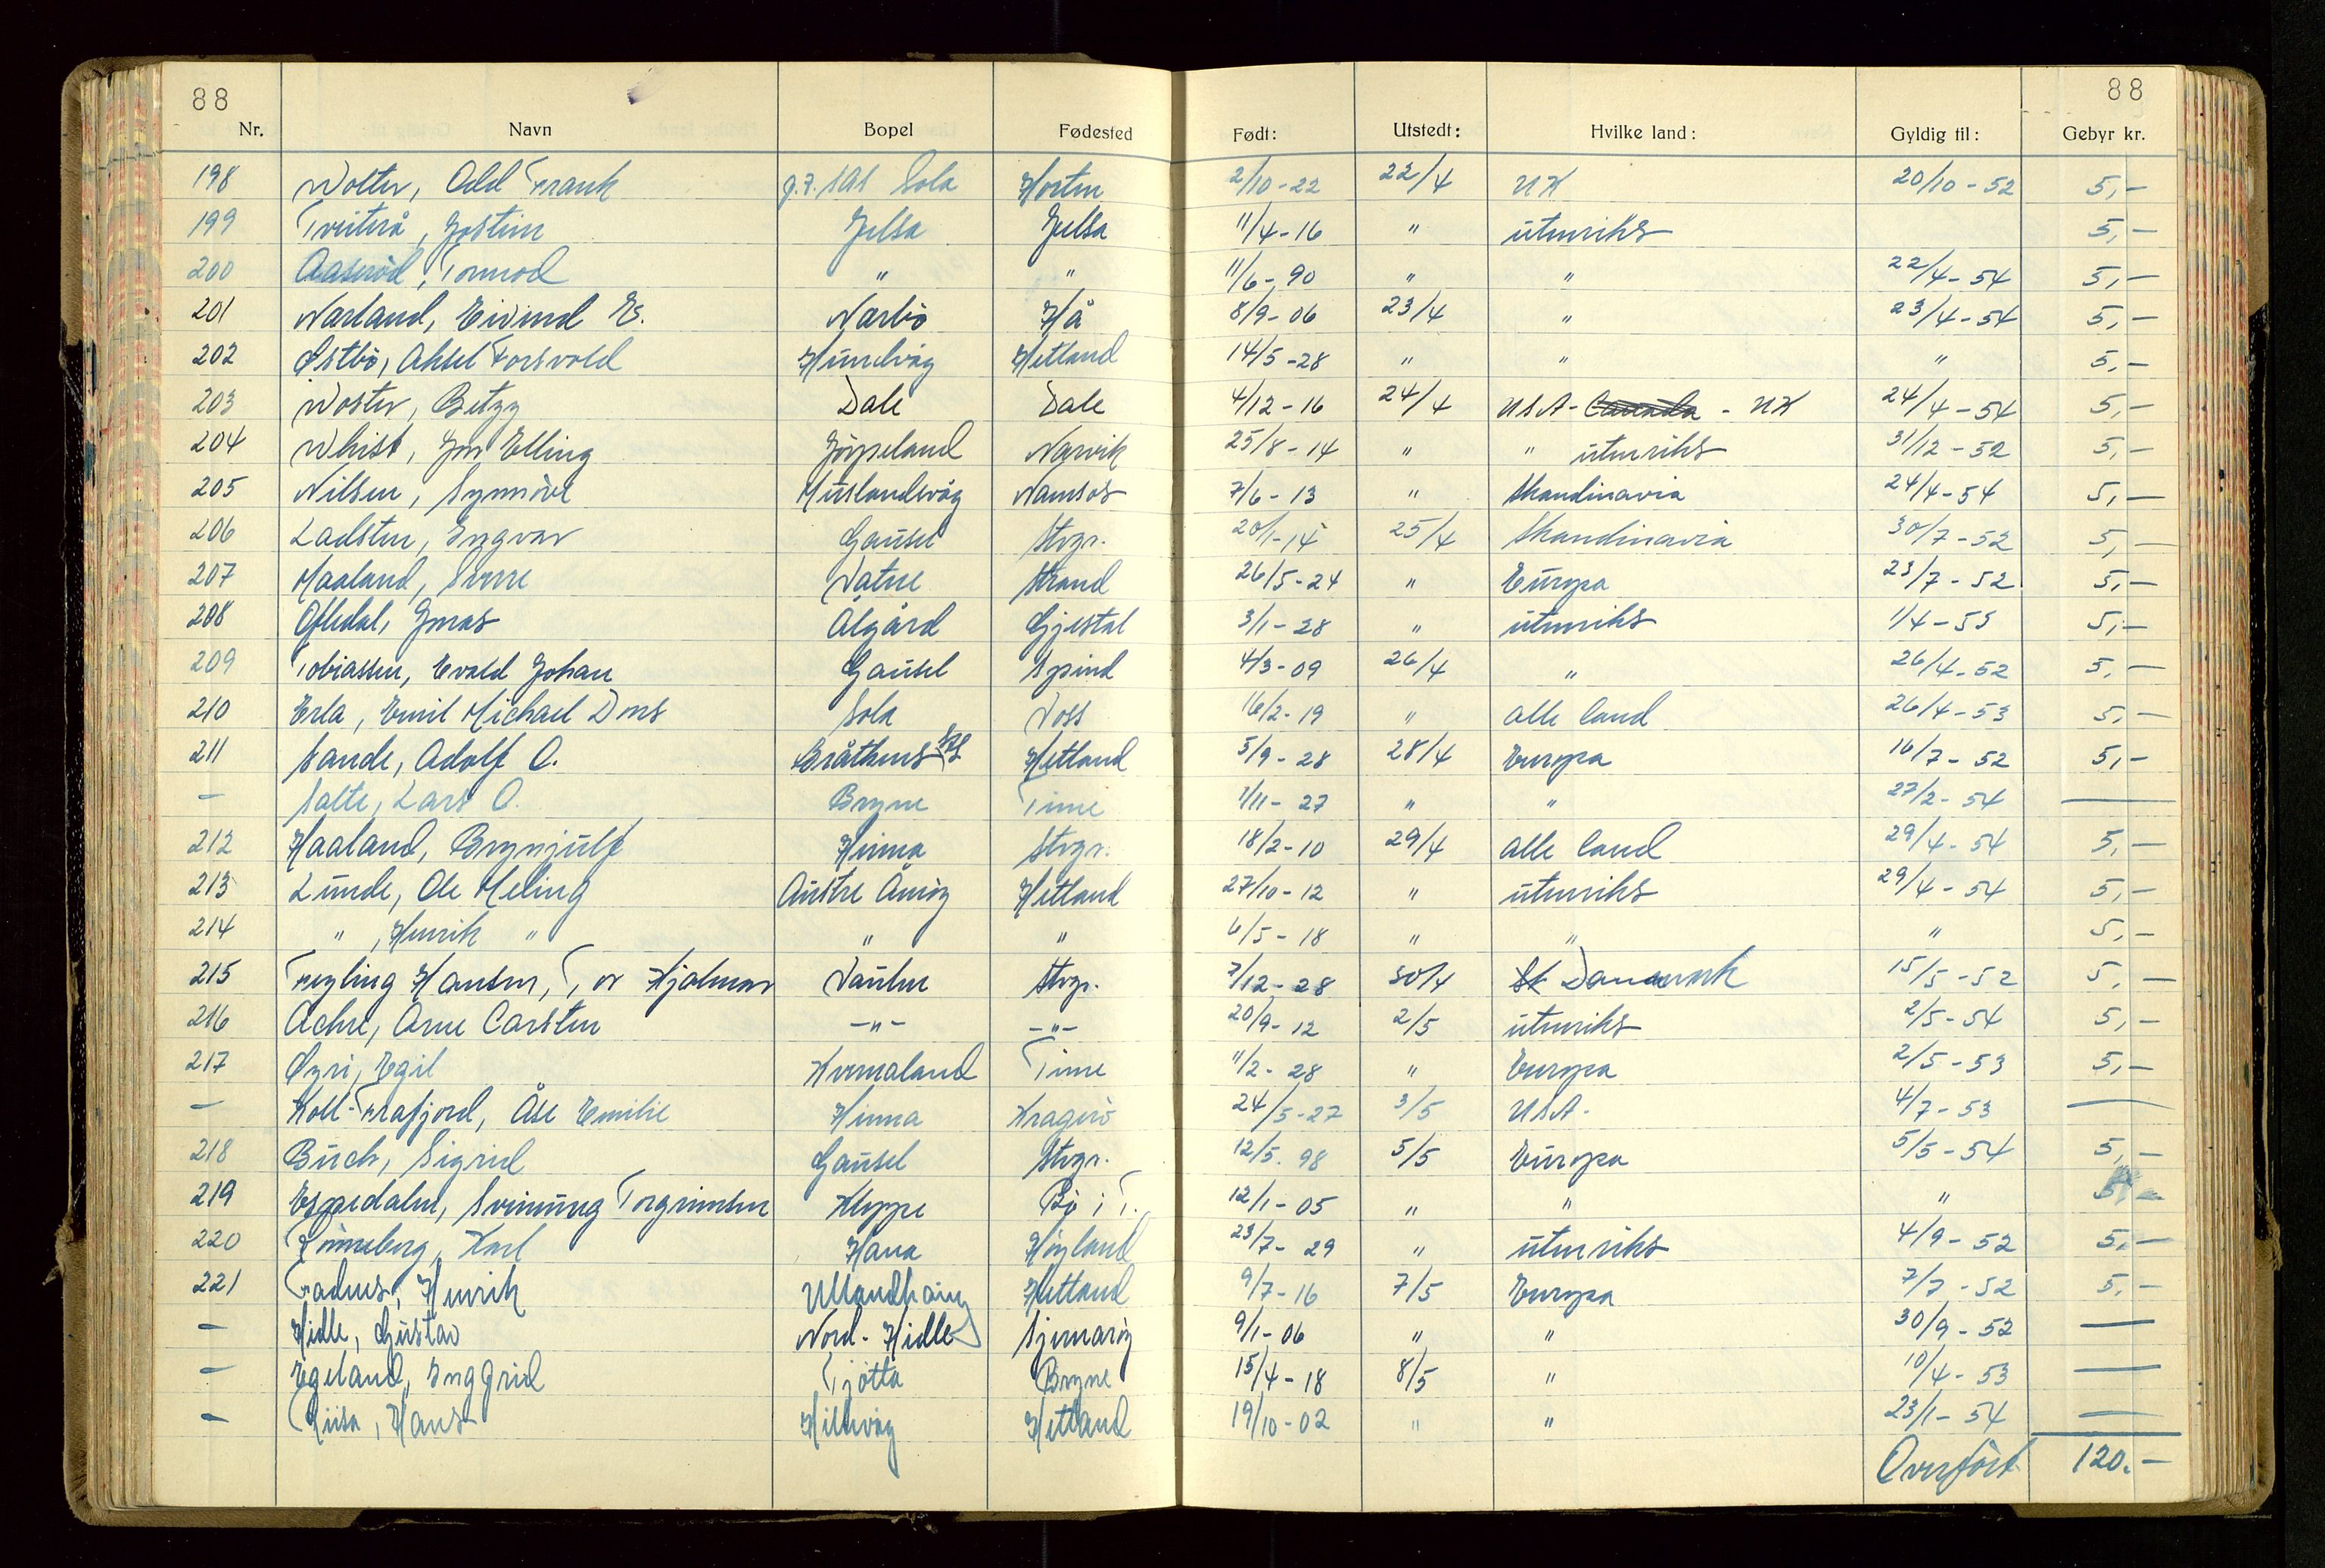 88 88
Nr. Navn Bopel Fødested Født: Utstedt: Hvilke land: Gyldig til: Gebyr kr.
198 Wolter, Odd Frank p.t. SAS Sola Horten 2/10-22 22/4 UK 20/10-52 5,-
199 Tveiterå, Jostein Jelsa Jelsa 11/4-16 " utenriks 5,-
200 Aaserød, Tormod " " 11/6-90 " " 22/4-54 5,-
201 Nærland, Eivind E. Nærbø Hå 8/9-06 23/4 " 23/4-54 5,-
202 Østbø, Aksel Torsvald Hundvåg Hetland 14/5-28 " " " 5,-
203 Woster, Betzy Dale Dale 4/12-16 24/4 USA - Canada - UK 24/4-54 5,-
204 Whist, Jon Elling Jørpeland Narvik 25/8-14 " " utenriks 31/12-52 5,-
205 Nilsen, Synnøve Huslandsvåg Namsos 7/6-13 " Skandinavia 24/4-54 5,-
206 Ladsten, Ingvar Gausel Stvgr. 20/1-14 25/4 Skandinavia 30/7-52 5,-
207 Maaland, Sverre Vatne Strand 26/5-24 " Europa 23/7-52 5,-
208 Oftedal, Jonas Ålgård Gjestal 3/1-28 " utenriks 1/4-53 5,-
209 Tobiassen, Evald Johan Gausel Spind 4/3-09 26/4 " 26/4-52 5,-
210 Erla, Emil Michael Dons Sola Voss 16/2-19 " alle land 26/4-53 5,-
211 Sande, Adolf O. Bråthens Hetland 5/9-28 28/4 Europa 16/7-52 5,-
- Salte, Lars O. Bryne Time 1/11-27 " " 27/2-54 —
212 Haaland, Brynjulf Hinna Stvgr. 18/2-10 29/4 alle land 29/4-54 5,-
213 Lunde, Ole Meling Austre Åmøy Hetland 27/10-12 " utenriks 29/4-54 5,-
214 ", Henrik " " " 6/5-18 " " " 5,-
215 Fregling Hansen, Tor Hjalmar Vaulen Stvgr. 7/12-28 30/4 Sk Danmark 15/5-52 5,-
216 Achre, Arne Carsten -"- -"- 20/9-12 2/5 utenriks 2/5-54 5,-
217 Øyri, Egil Kvernaland Time 11/2-28 " Europa 2/5-53 5,-
- Koll-Frafjord, Åse Emilie Hinna Kragerø 24/5-27 3/5 USA. 4/7-53 —
218 Buch, Sigrid Gausel Stvgr. 12/5.98 5/5 Europa 5/5-54 5,-
219 Espedalen, Sveinung Torgrimsen Kleppe Bø i T. 12/1-05 " " " 5,-
220 Rønneberg, Karl Hana Høyland 23/7-29 " utenriks 4/9-52 5,-
221 Fadnes, Henrik Ullandhaug Hetland 9/7-16 7/5 Europa 7/7-52 5,-
- Hidle, Gustav Nord-Hidle Sjernarøy 9/1-06 " " 30/9-52 —
- Egeland, Inggrid Tjøtta Bryne 15/4-18 8/5 " 10/4-53 —
- Riisa, Hans Hillevåg Hetland 19/10-02 " " 23/1-54 —
Overført 120.-